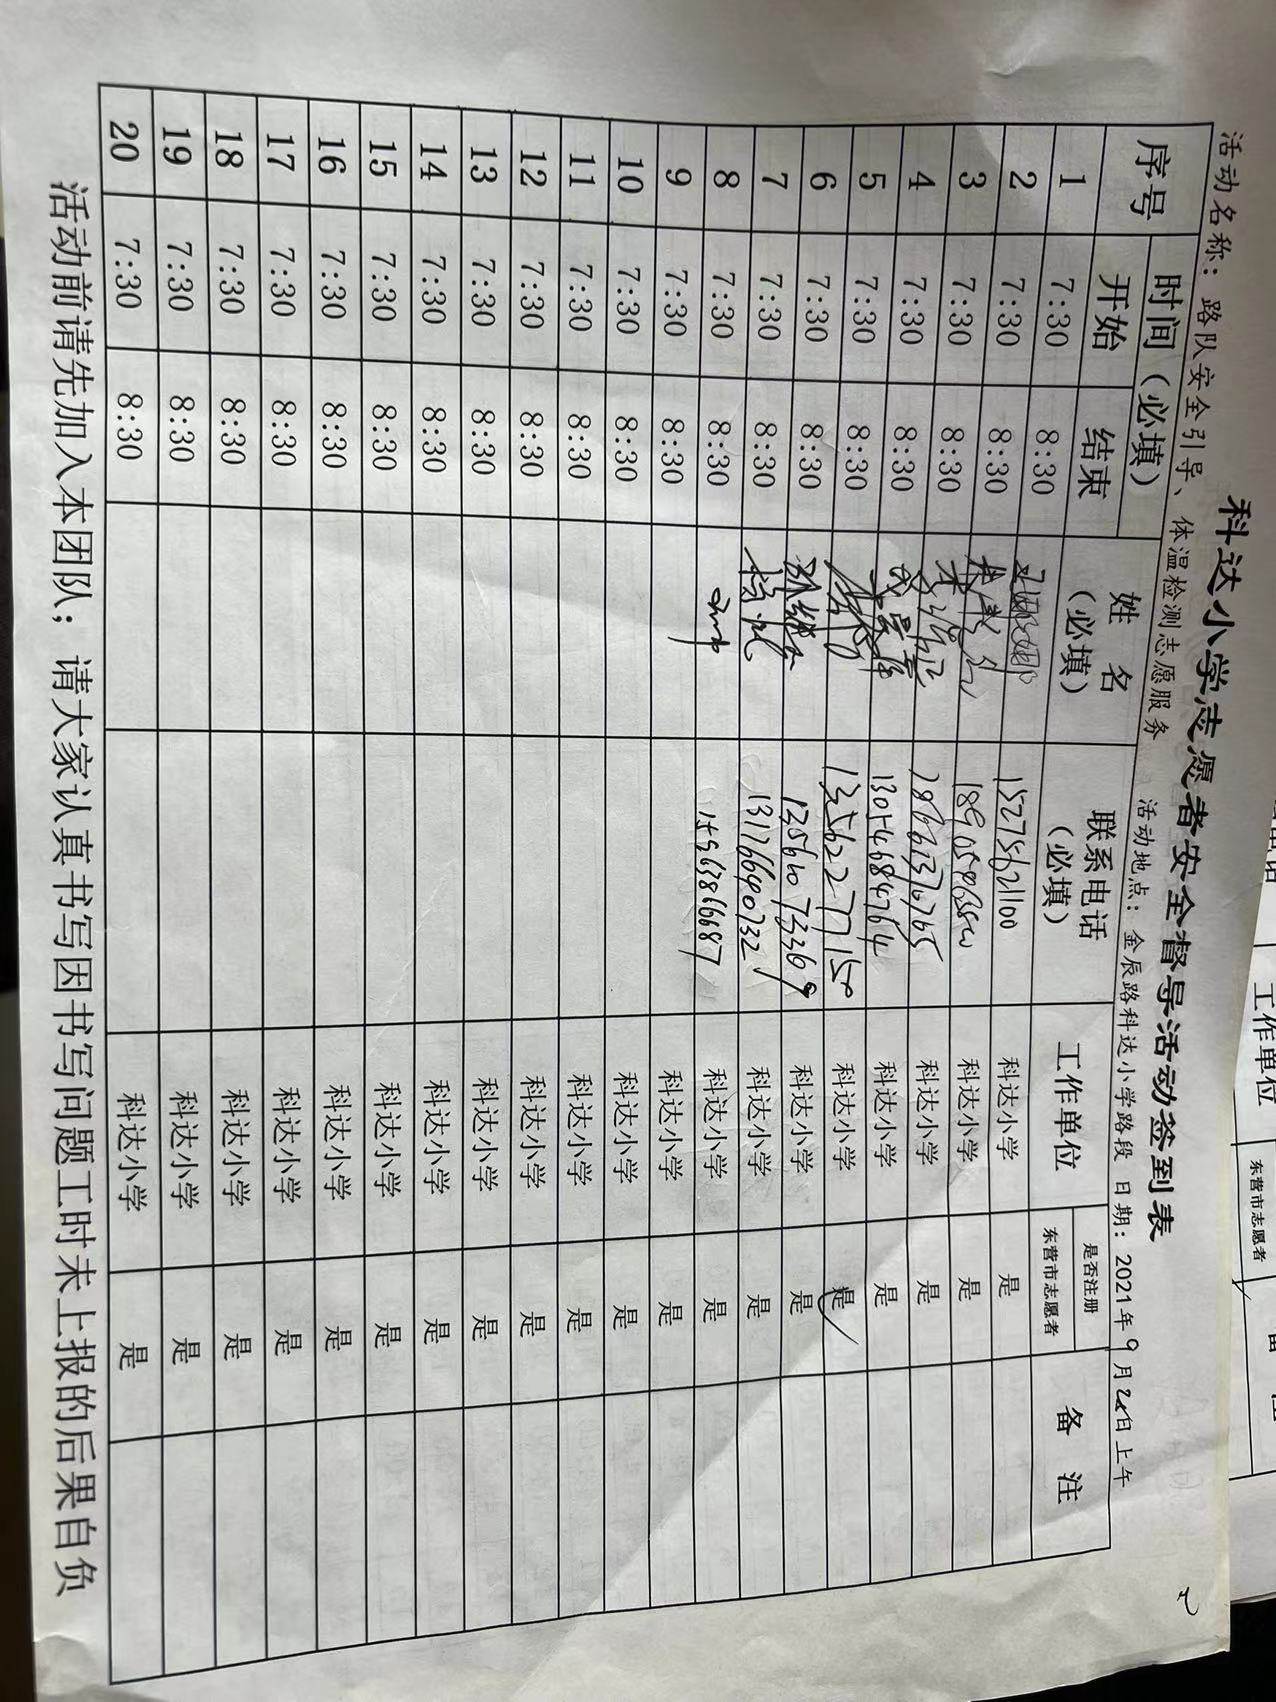 科达小学志愿者安全督导活动签到表
活动名称：路队安全引导、体温检测志愿服务 活动地点：金辰路科达小学路段 日期：2021年9月 日上午
序号 时间（必填） 姓 名（必填） 联系电话（必填） 工作单位 是否注册东营市志愿者 备 注
开始 结束
1 7:30 8:30 15275621100 科达小学 是
2 7:30 8:30 科达小学 是
3 7:30 8:30 科达小学 是
4 7:30 8:30 13054684764 科达小学 是
5 7:30 8:30 科达小学 是
6 7:30 8:30 13561073369 科达小学 是
7 7:30 8:30 13176640732 科达小学 是
8 7:30 8:30 科达小学 是
9 7:30 8:30 科达小学 是
10 7:30 8:30 科达小学 是
11 7:30 8:30 科达小学 是
12 7:30 8:30 科达小学 是
13 7:30 8:30 科达小学 是
14 7:30 8:30 科达小学 是
15 7:30 8:30 科达小学 是
16 7:30 8:30 科达小学 是
17 7:30 8:30 科达小学 是
18 7:30 8:30 科达小学 是
19 7:30 8:30 科达小学 是
20 7:30 8:30 科达小学 是
活动前请先加入本团队；请大家认真书写因书写问题工时未上报的后果自负
工作单位
东营市志愿者